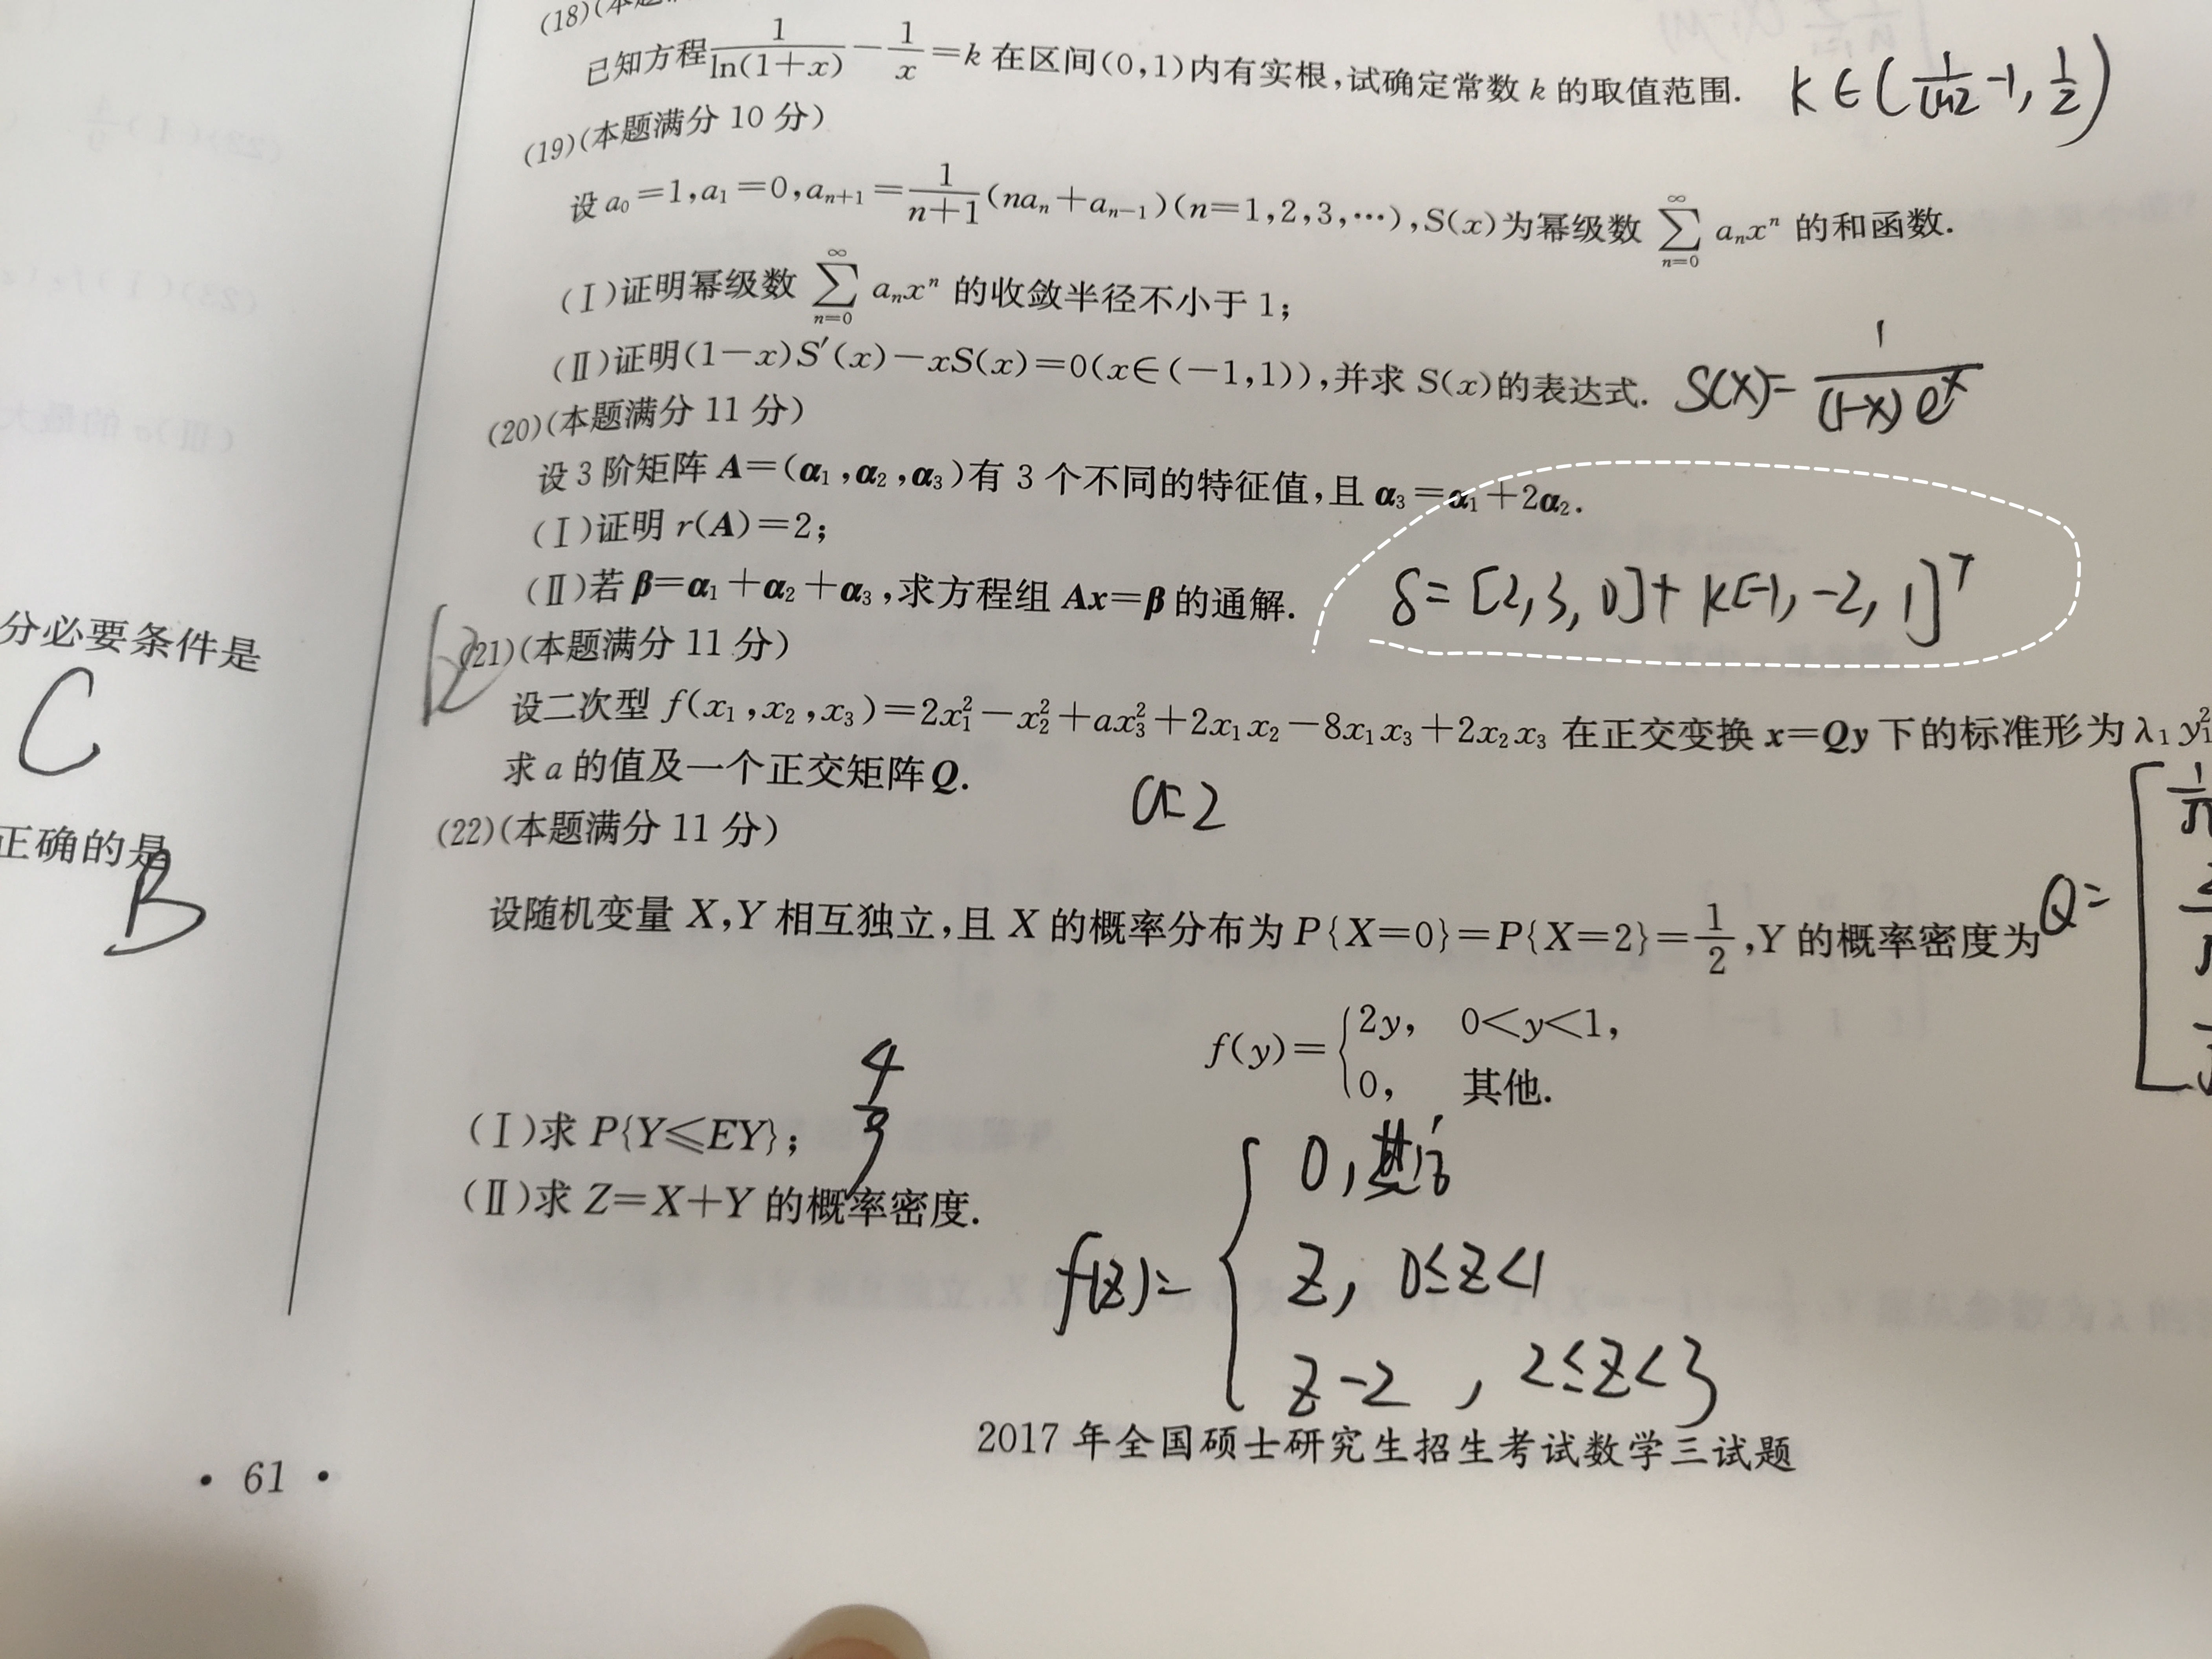 (18)(本题
已知方程\frac{1}{\ln(1+x)}-\frac{1}{x}=k 在区间(0,1)内有实根,试确定常数 k 的取值范围. k∈(\frac{1}{ln2}-1,\frac{1}{2})
(19)(本题满分 10 分)
设 a₀=1,a₁=0,aₙ₊₁=\frac{1}{n+1}(naₙ+aₙ₋₁)(n=1,2,3,…),S(x)为幂级数 \sum_{n=0}^{∞} aₙxⁿ 的和函数.
(Ⅰ)证明幂级数 \sum_{n=0}^{∞} aₙxⁿ 的收敛半径不小于 1;
(Ⅱ)证明(1-x)S′(x)-xS(x)=0(x∈(-1,1)),并求 S(x)的表达式. S(x)=\frac{1}{(1-x)e^x}
(20)(本题满分 11 分)
设 3 阶矩阵 A=(α₁,α₂,α₃)有 3 个不同的特征值,且 α₃=α₁+2α₂.
(Ⅰ)证明 r(A)=2;
(Ⅱ)若 β=α₁+α₂+α₃,求方程组 Ax=β 的通解. δ=[2,3,0]+k[-1,-2,1]ᵀ
(21)(本题满分 11 分)
设二次型 f(x₁,x₂,x₃)=2x₁²-x₂²+ax₃²+2x₁x₂-8x₁x₃+2x₂x₃ 在正交变换 x=Qy 下的标准形为 λ₁y₁²
求 a 的值及一个正交矩阵 Q. a=2
Q=
(22)(本题满分 11 分)
设随机变量 X,Y 相互独立,且 X 的概率分布为 P{X=0}=P{X=2}=\frac{1}{2},Y 的概率密度为
f(y)={2y, 0<y<1,
0, 其他.
(Ⅰ)求 P{Y≤EY}; \frac{4}{9}
(Ⅱ)求 Z=X+Y 的概率密度.
f(z)={0,其他
z, 0≤z<1
z-2, 2≤z<3
2017 年全国硕士研究生招生考试数学三试题
· 61 ·
分必要条件是
C
正确的是
B